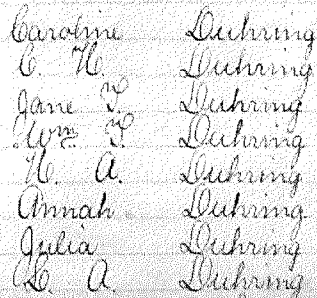 Caroline Duhring
C. H. Duhring
Jane T. Duhring
Wm T. Duhring
H. A. Duhring
Annah Duhring
Julia Duhring
L. A. Duhring